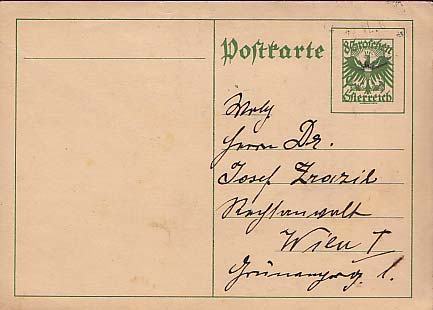 Postkarte
8 Groschen
Österreich
Herrn Dr.
Josef Zrazil
Rechtsanwalt
Wien I
Grünangerg. 1.